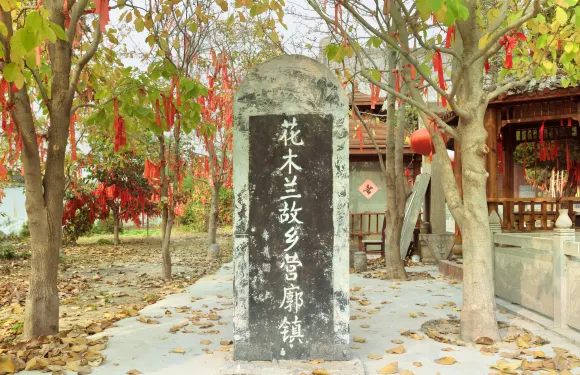 花木兰故乡营廓镇